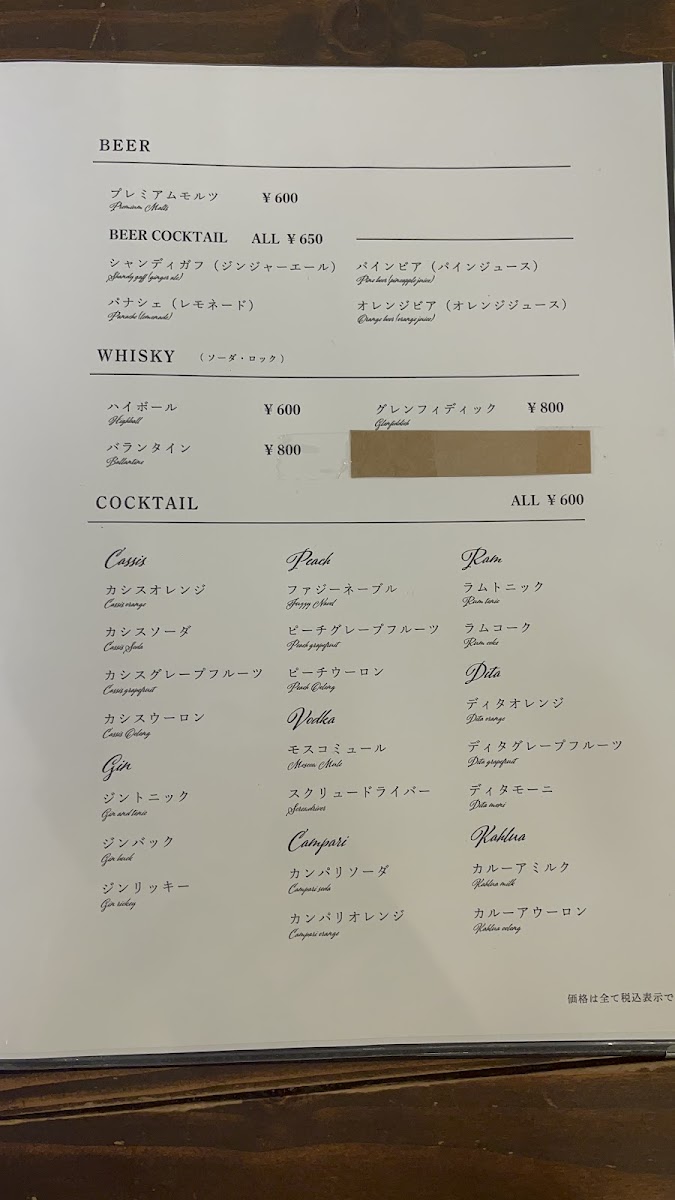 BEER
プレミアムモルツ ¥600
Premium Malts
BEER COCKTAIL ALL ¥650
シャンディガフ（ジンジャーエール） パインビア（パインジュース）
Shandy gaff (ginger ale) Pine beer (pineapple juice)
パナシェ（レモネード） オレンジビア（オレンジジュース）
Panache (lemonade) Orange beer (orange juice)
WHISKY （ソーダ・ロック）
ハイボール ¥600 グレンフィディック ¥800
Highball Glenfiddich
バランタイン ¥800
Ballantine
COCKTAIL ALL ¥600
Cassis
カシスオレンジ
Cassis orange
カシスソーダ
Cassis Soda
カシスグレープフルーツ
Cassis grapefruit
カシスウーロン
Cassis Oolong
Gin
ジントニック
Gin and tonic
ジンバック
Gin buck
ジンリッキー
Gin rickey
Peach
ファジーネーブル
Fuzzy Navel
ピーチグレープフルーツ
Peach grapefruit
ピーチウーロン
Peach Oolong
Vodka
モスコミュール
Moscow Mule
スクリュードライバー
Screwdriver
Campari
カンパリソーダ
Campari soda
カンパリオレンジ
Campari orange
Ram
ラムトニック
Rum tonic
ラムコーク
Rum coke
Dita
ディタオレンジ
Dita orange
ディタグレープフルーツ
Dita grapefruit
ディタモーニ
Dita moni
Kahlua
カルーアミルク
Kahlua milk
カルーアウーロン
Kahlua oolong
価格は全て税込表示で